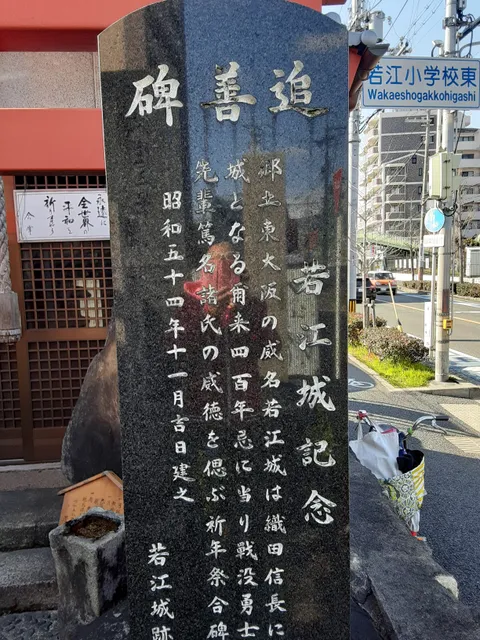 追善碑
若江城記念
郷土東大阪の威名若江城は織田信長に
城となる爾来四百年忌に当り戦没勇士
先輩篤名諸氏の威徳を偲ぶ祈年祭合碑
昭和五十四年十一月吉日建之
若江城跡
若江小学校東
Wakaeshogakkohigashi
永遠に
全世界が
平和を
祈ります